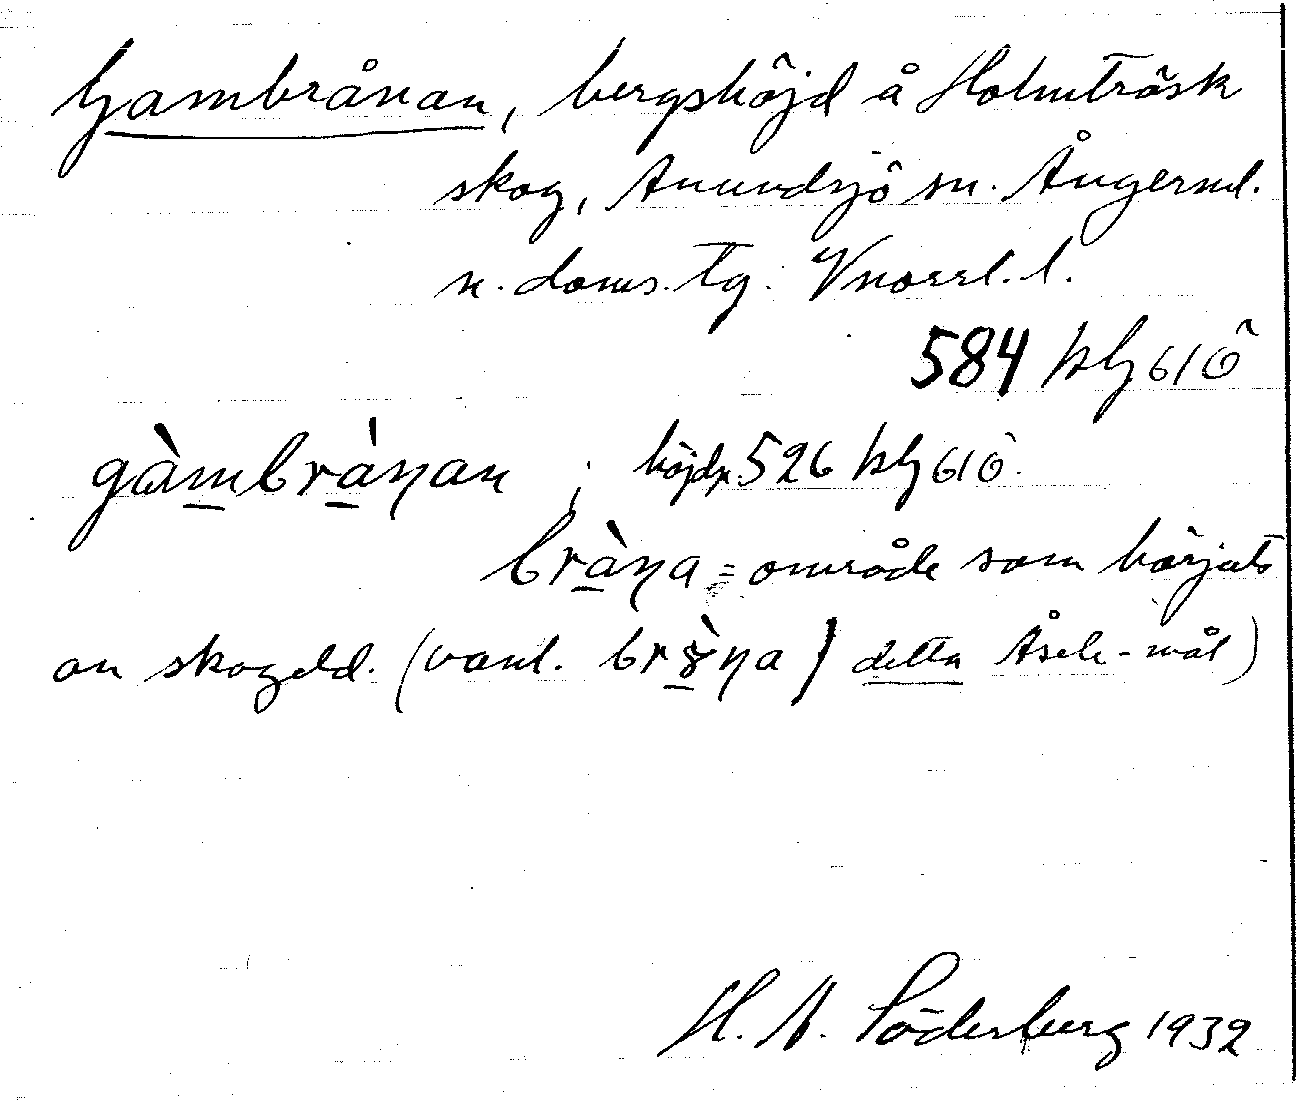 Gambrånan, bergshöjd å Holmträsk
skog, Anundsjö sn. Ångerml.
n. doms. tg. Vnorrl. l.
584 blg 61ö
gàmbrànan ; höjdp. 526 blg 61ö.
bràna = område som härjats
av skogeld. (vanl. brna) detta Åsele-mål)
H. A. Söderberg 1932